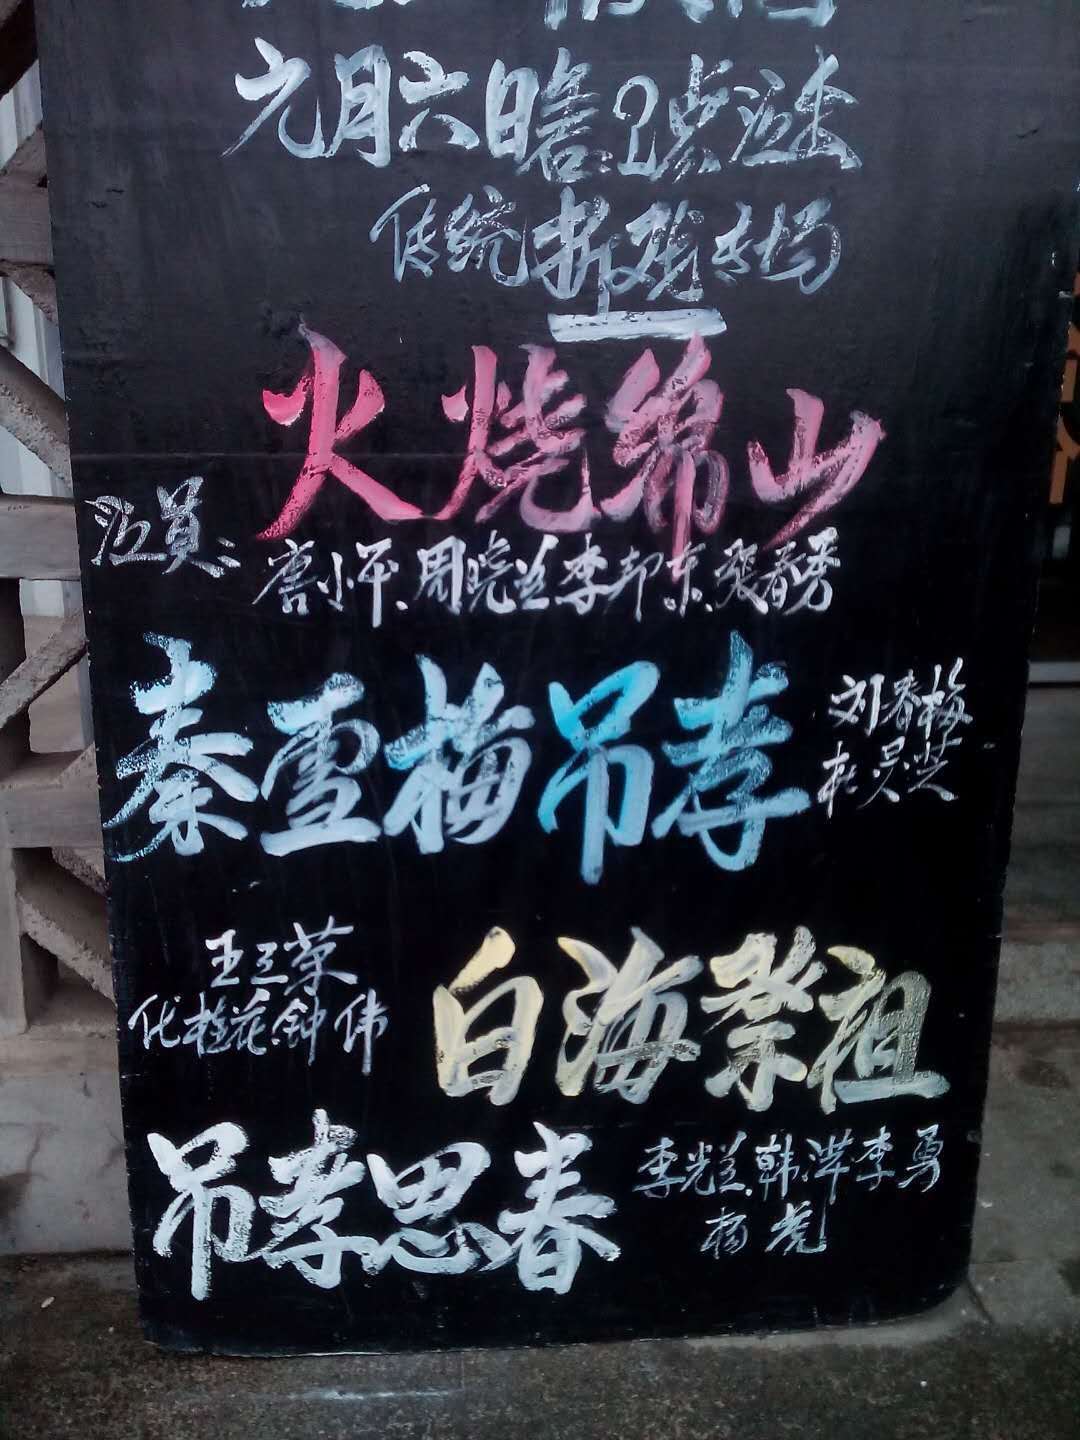 元月六日晚:2点演出
传统折戏专场
火烧绵山
演员:
唐小平、周晓兰、李邦东、张春秀
秦雪梅吊孝
刘春梅
杜吴芝
王三荣
化桂花、钟伟
白海祭祖
吊孝思春
李光兰、韩洪、李勇
杨虎